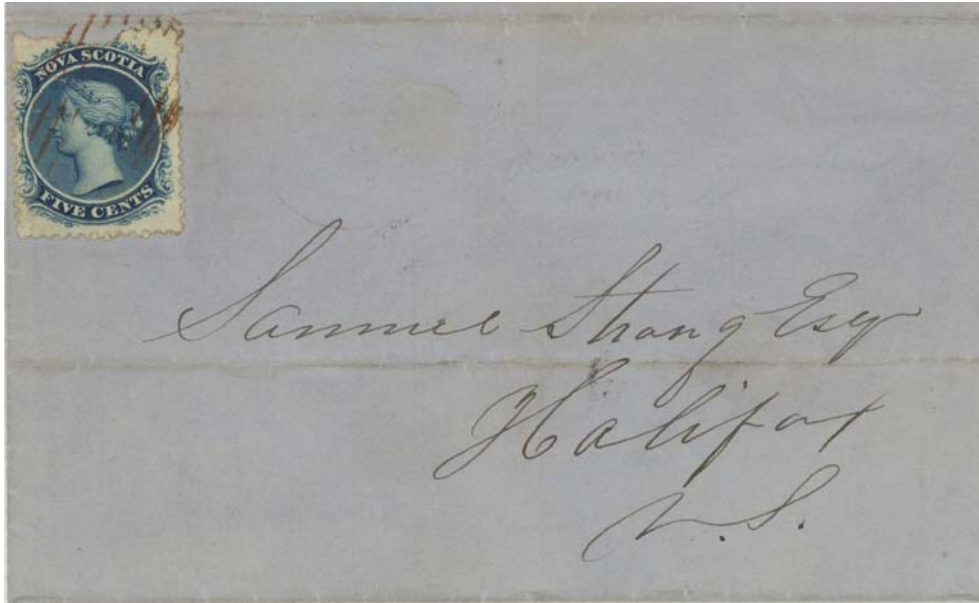 NOVA SCOTIA
FIVE CENTS
Samuel Strong Esq
Halifax
N.S.